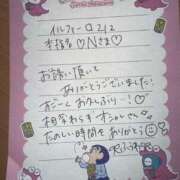 イルフィーロ212
本指名♡Nさま♡
お誘い頂いて
ありがとうございました!
お久しぶり…!
相変わらずオシャレさん
たのしい時間をありがとう